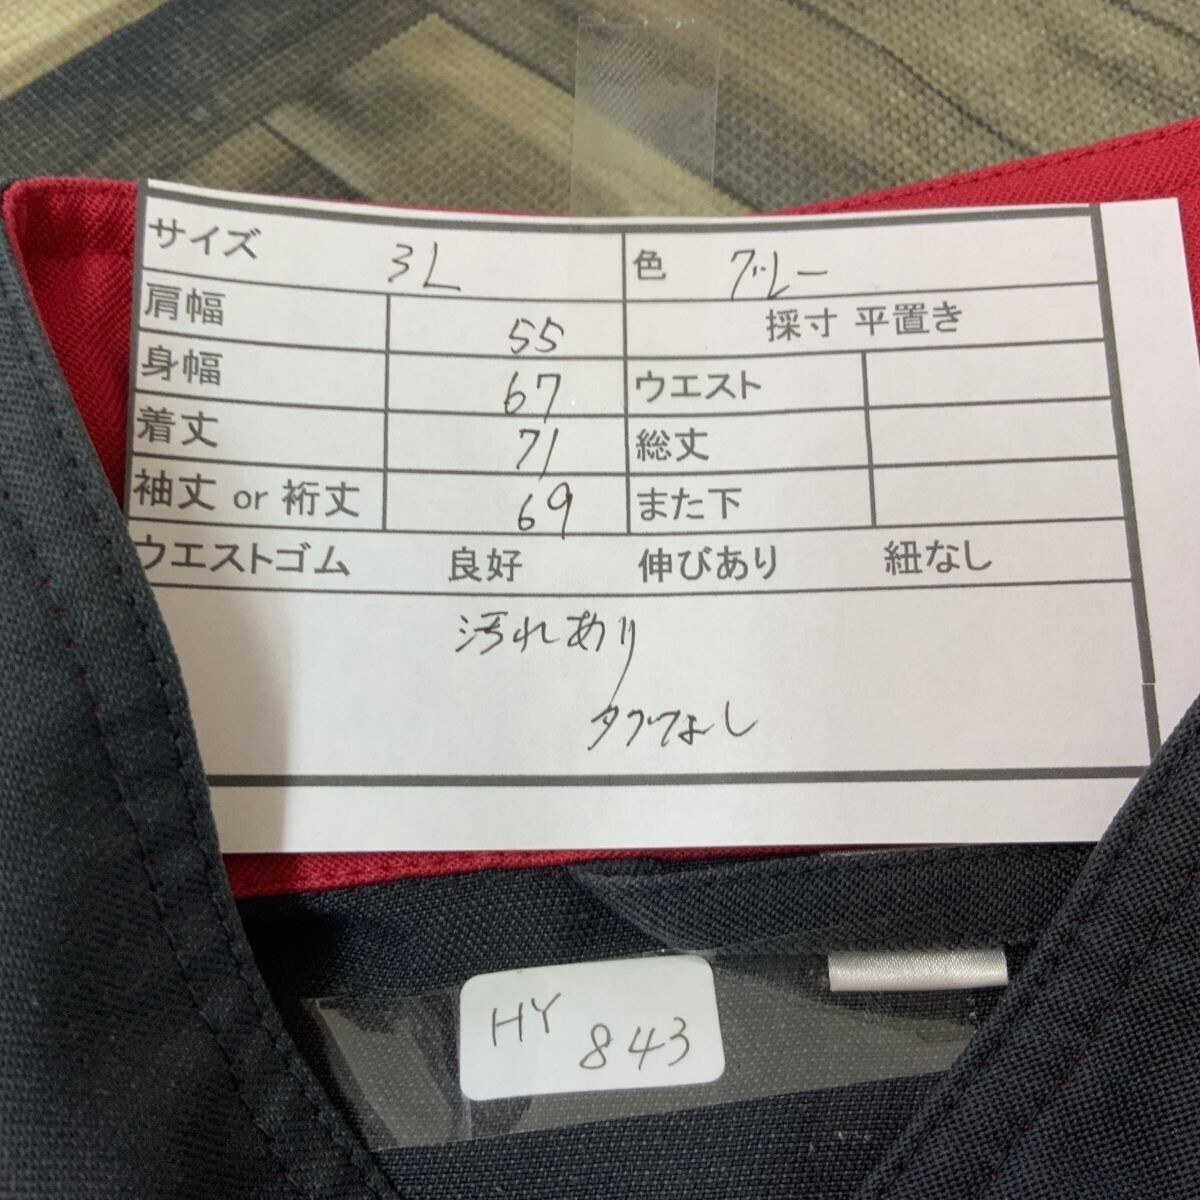 サイズ 3L 色 グレー
肩幅 55 採寸 平置き
身幅 67 ウエスト
着丈 71 総丈
袖丈 or 裄丈 69 また下
ウエストゴム 良好 伸びあり 紐なし
汚れあり
タグなし
HY
843